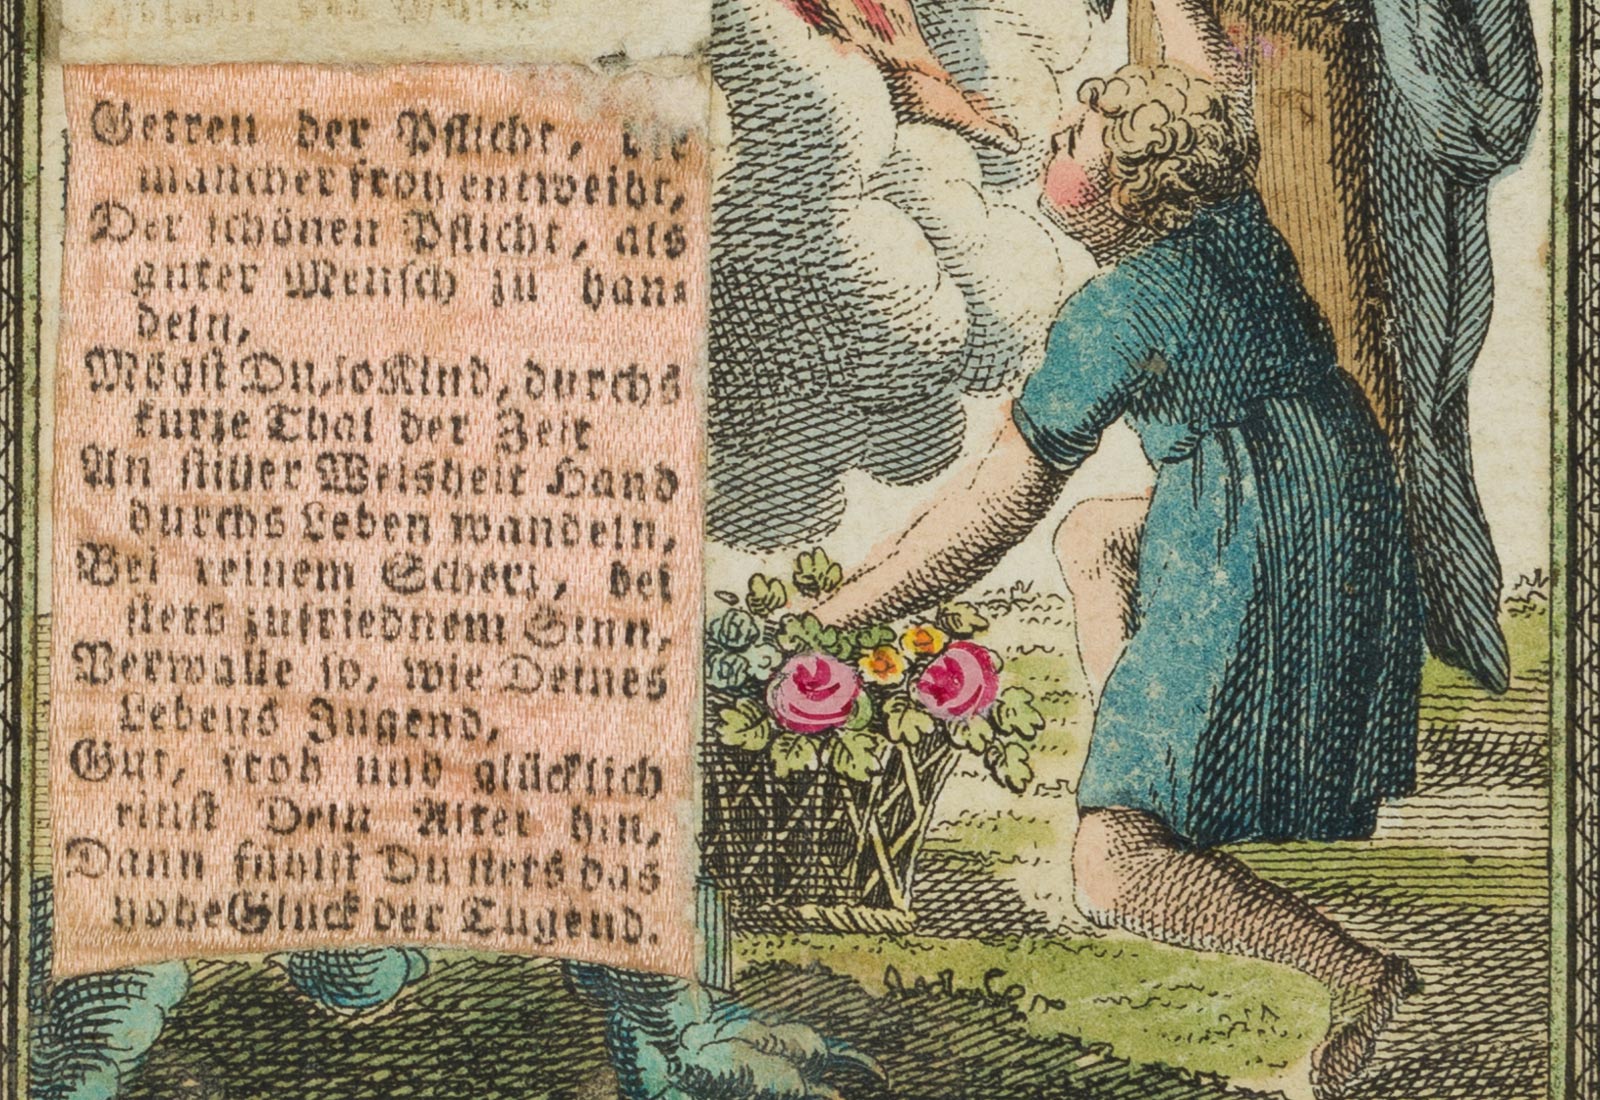 Getreu der Pflicht, die
mancher froh entweiht,
Der schönen Pflicht, als
guter Mensch zu han⸗
deln,
Mögst Du, so Kind, durchs
kurze Thal der Zeit
An stiller Weisheit Hand
durchs Leben wandeln,
Bei reinem Scherz, bei
stets zufriednem Sinn,
Verwalle so, wie Deines
Lebens Jugend,
Gut, froh und glücklich
rinnt Dein Alter hin,
Dann fühlst Du stets das
hohe Glück der Tugend.